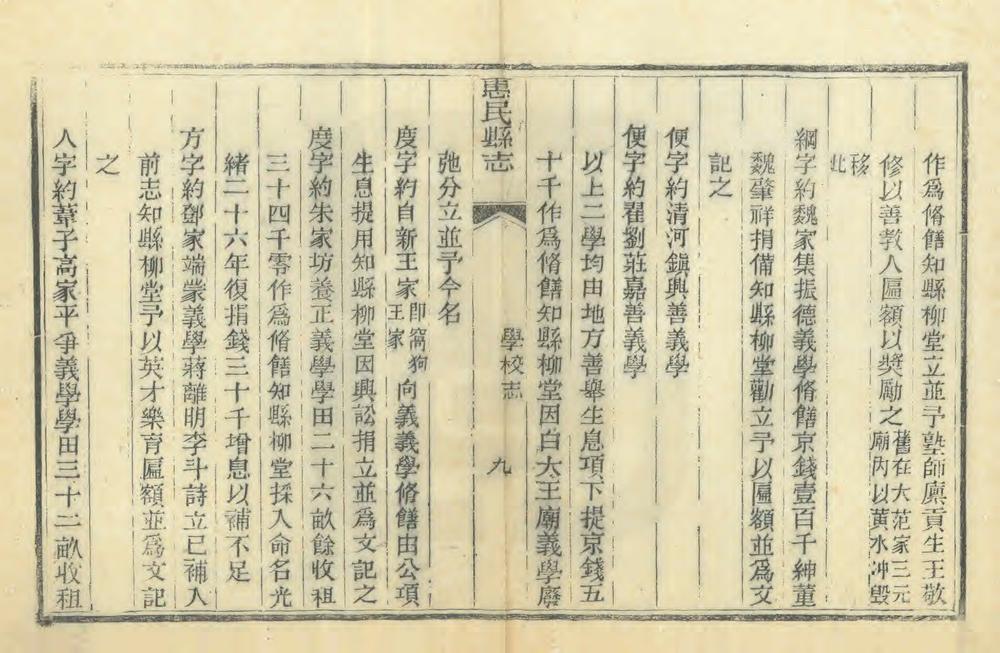 作爲脩饍知縣柳堂立並予塾師廪貢生王敬
修以善教人匾額以獎勵之舊在大范家三元廟內以黃水冲毀
移此
綱字約魏家集振德義學脩饍京錢壹百千紳董
魏肇祥捐備知縣柳堂勸立予以匾額並爲文
記之
便字約清河鎭興善義學
便字約翟劉莊嘉善義學
以上二學均由地方善舉生息項下提京錢五
十千作爲脩饍知縣柳堂因白大王廟義學廢
惠民縣志
學校志
九
弛分立並予今名
度字約自新王家卽窩狗王家向義義學脩饍由公項
生息提用知縣柳堂因興訟捐立並爲文記之
度字約朱家坊養正義學學田二十六畝餘收租
三十四千零作爲脩饍知縣柳堂採入命名光
緒二十六年復捐錢三十千增息以補不足
方字約鄧家端蒙義學蔣離明李斗詩立已補入
前志知縣柳堂予以英才樂育匾額並爲文記
之
人字約葦子高家平爭義學學田三十二畝收租